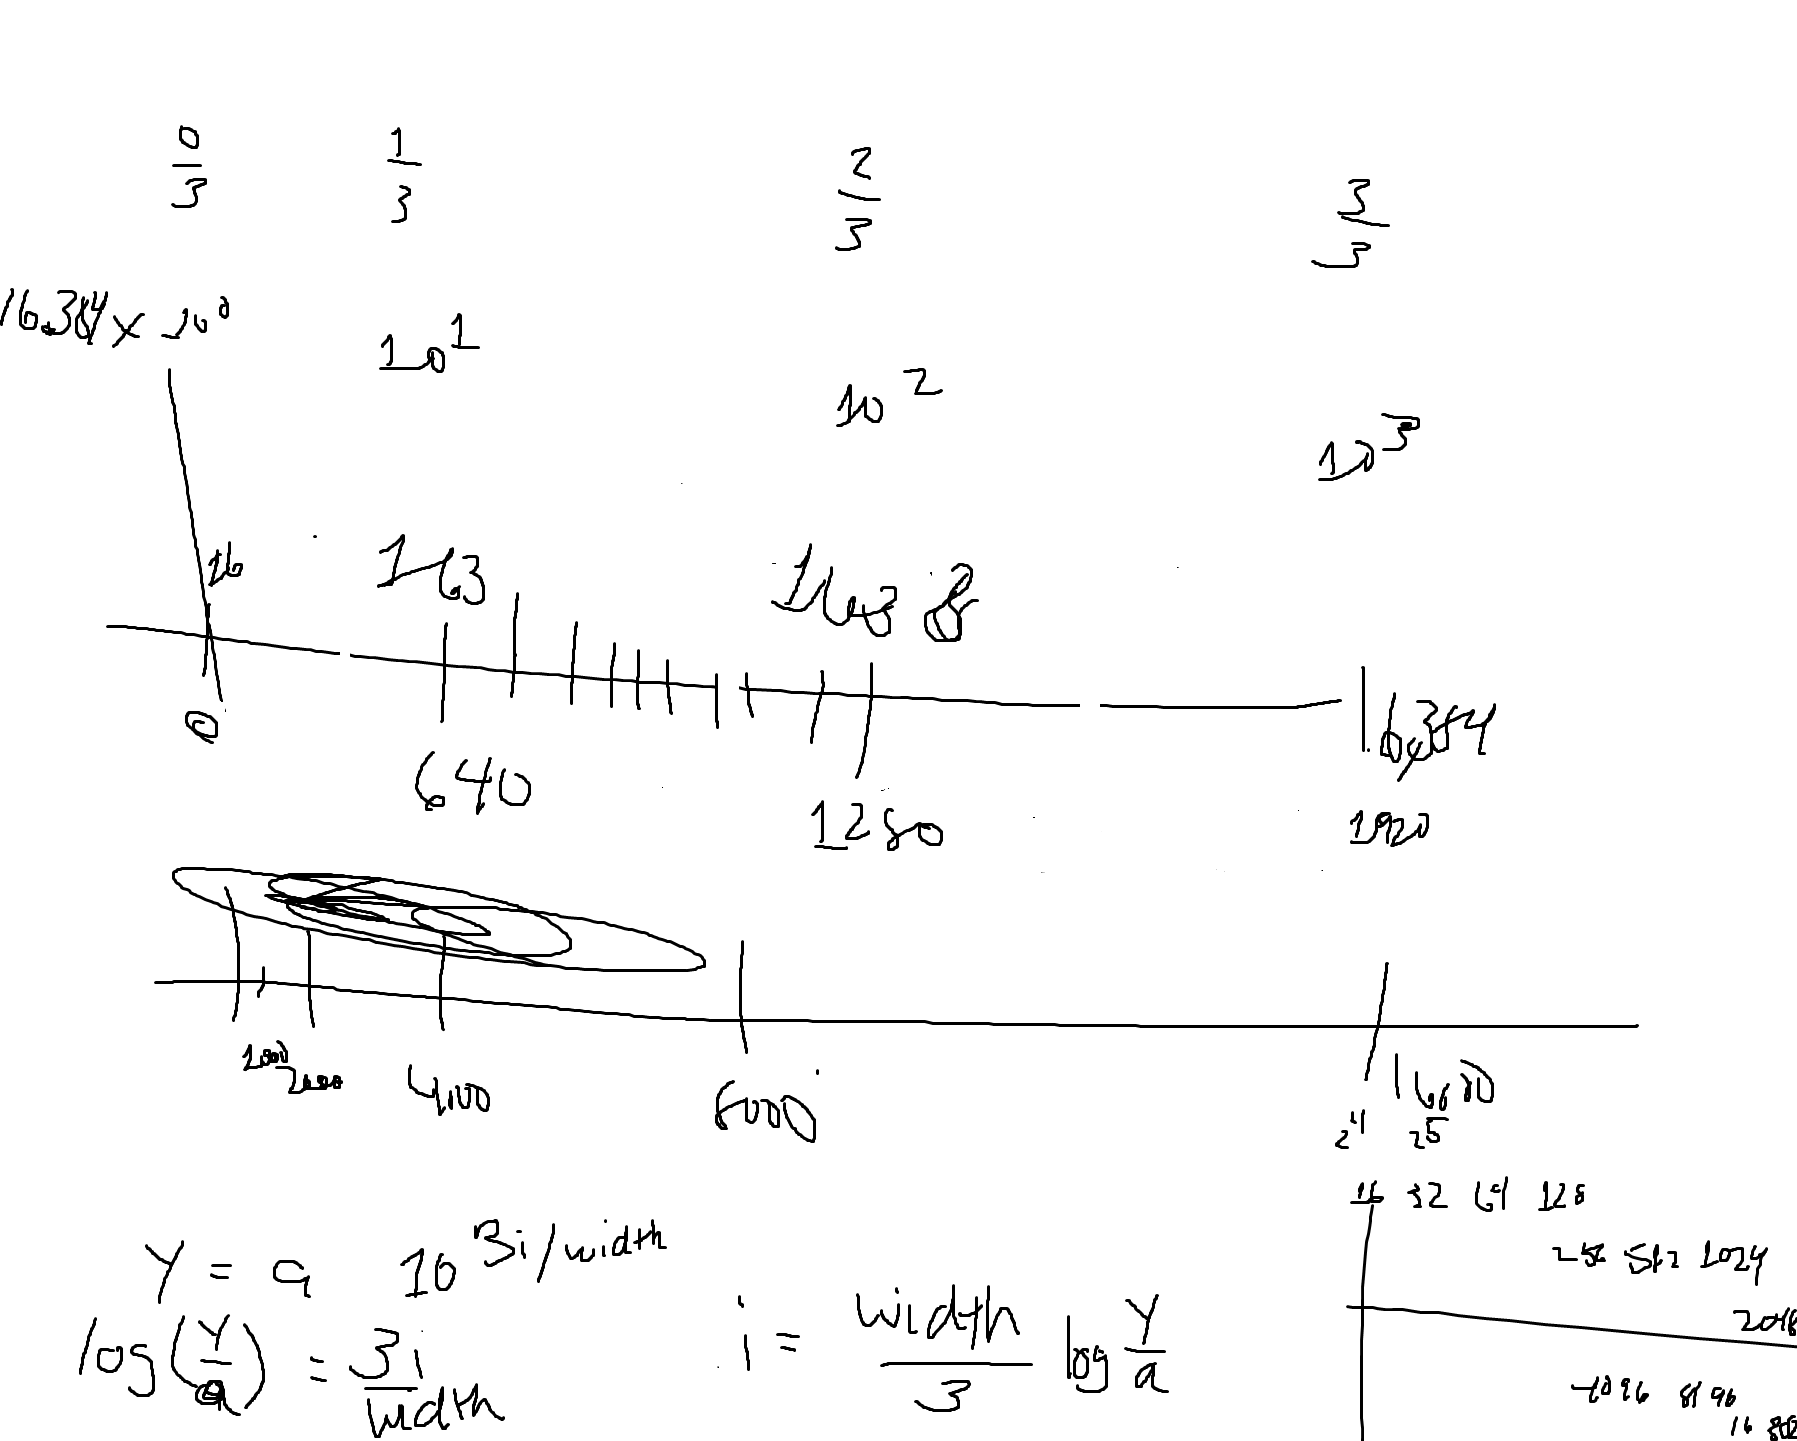 0/3 1/3 2/3 3/3
16.384 x 10^0 10^1 10^2 10^3
16 163 1638 16,384
0 640 1280 1920
1000 2000 4000 8000 16000
2^4 2^5
16 32 64 128
256 512 1024
2048
4096 8196
16
Y = a 10^3i/width
log(Y/a) = 3i/width
i = width/3 log Y/a